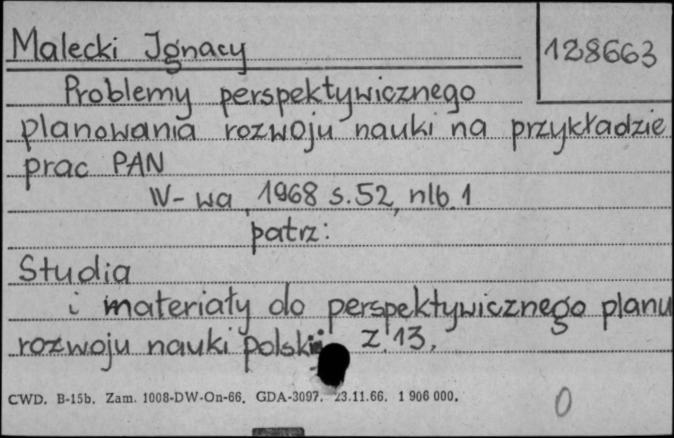 Malecki Ignacy
128663
Problemy perspektywicznego
planowania rozwoju nauki na przykładzie
prac PAN
W-wa, 1968 s.52, nlb.1
patrz:
Studia
i materiały do perspektywicznego planu
rozwoju nauki polskij z.13.
CWD. B-15b. Zam. 1008-DW-On-66. GDA-3097. 23.11.66. 1 906 000.
0